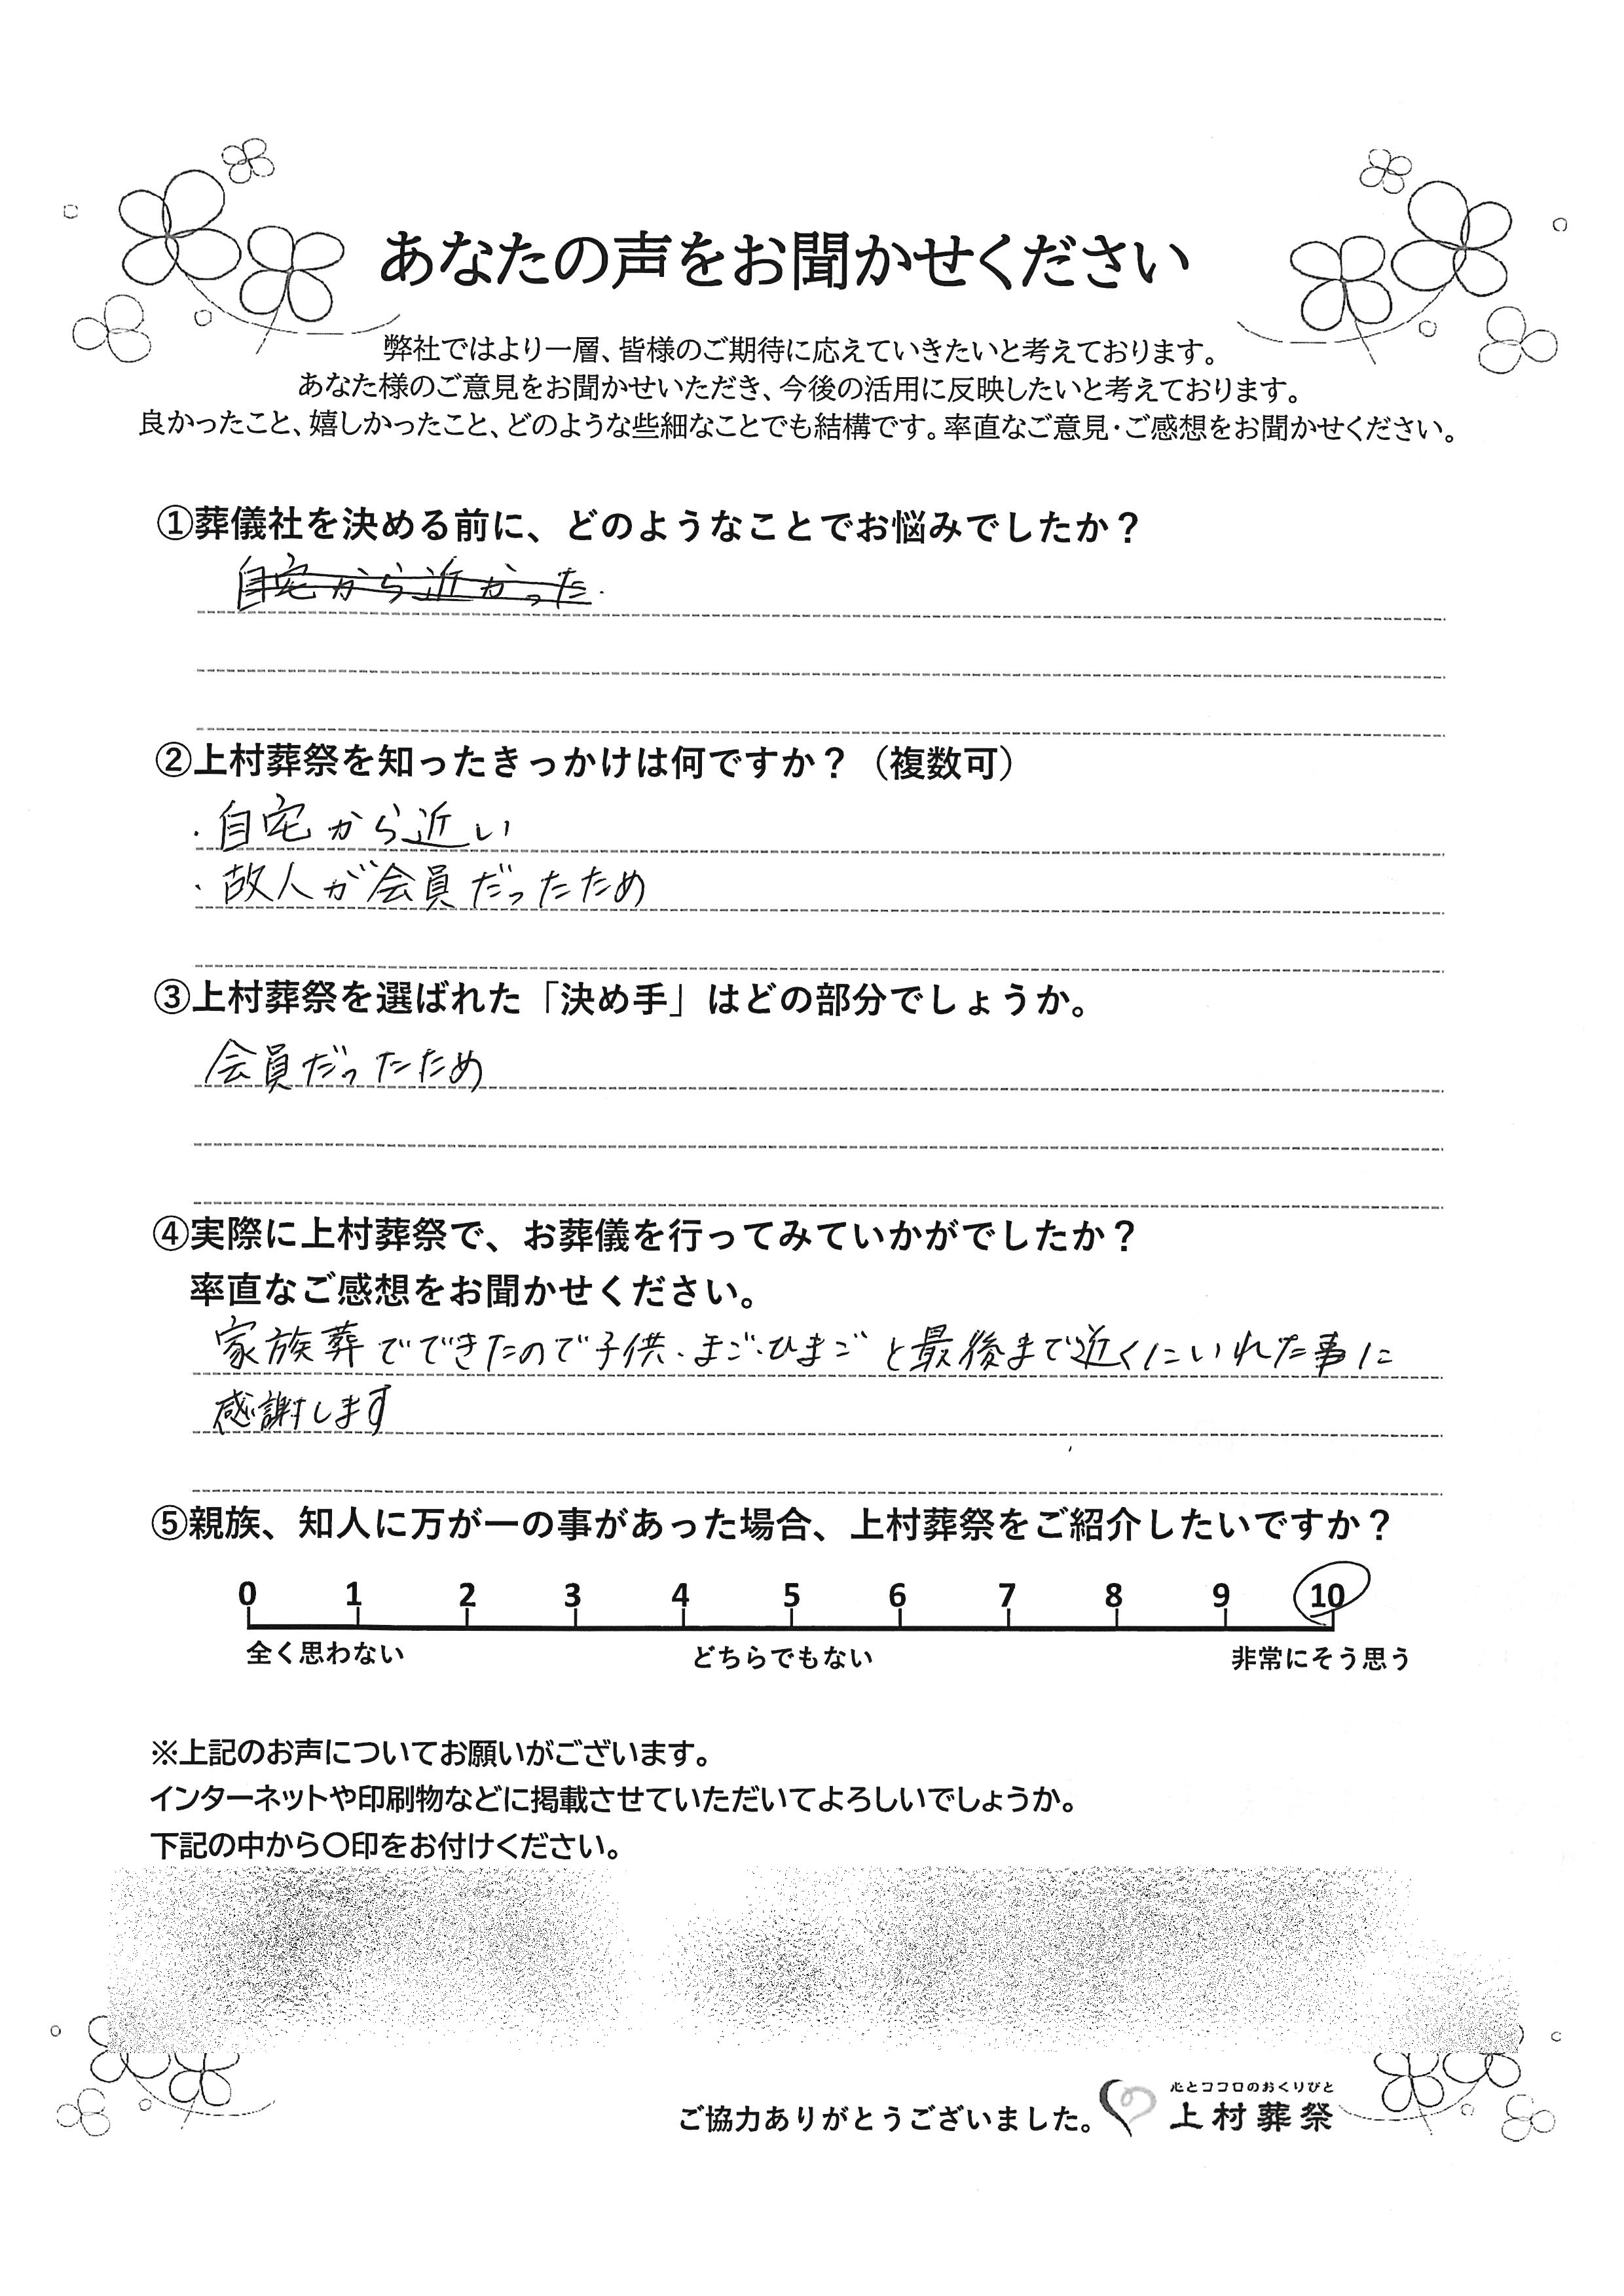 あなたの声をお聞かせください
弊社ではより一層、皆様のご期待に応えていきたいと考えております。
あなた様のご意見をお聞かせいただき、今後の活用に反映したいと考えております。
良かったこと、嬉しかったこと、どのような些細なことでも結構です。率直なご意見・ご感想をお聞かせください。
①葬儀社を決める前に、どのようなことでお悩みでしたか？
自宅から近かった.
②上村葬祭を知ったきっかけは何ですか？（複数可）
・自宅から近い
・故人が会員だったため
③上村葬祭を選ばれた「決め手」はどの部分でしょうか。
会員だったため
④実際に上村葬祭で、お葬儀を行ってみていかがでしたか？
率直なご感想をお聞かせください。
家族葬でできたので子供・まご・ひまごと最後まで近くにいれた事に
感謝します
⑤親族、知人に万が一の事があった場合、上村葬祭をご紹介したいですか？
0 1 2 3 4 5 6 7 8 9 10
全く思わない どちらでもない 非常にそう思う
※上記のお声についてお願いがございます。
インターネットや印刷物などに掲載させていただいてよろしいでしょうか。
下記の中から〇印をお付けください。
心とココロのおくりびと
ご協力ありがとうございました。 上村葬祭